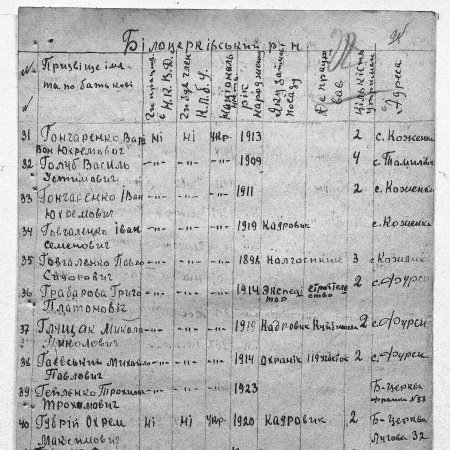 Білоцерківський р-н
№ Прізвище імя та по батькові Чи працює в Н.К.В.Д. Чи був член К.П.б.У. Національність рік народження Яку займає посаду Де працював Кількість утриман. Адреса
31 Гончаренко Варивон Юхремович ні ні укр. 1913 2 с. Коженки
32 Голуб Василь Устимович -"- -"- -"- 1909 4 с. Томилівка
33 Гончаренко Іван Юхремович -"- -"- -"- 1911 2 с. Коженки
34 Говгаленко Іван Семенович -"- -"- -"- 1919 Кадровик с. Коженки
35 Говгаленко Павло Сидорович -"- -"- -"- 1898 Колгоспник 3
36 Грабарова Григо Платонович -"- -"- -"- 1914 Експедитор строітельство 2 с. Фурси
37 Глущак Микола Миколович -"- -"- -"- 1919 Кадровик 2 с. Фурси
38 Гаєвський Михайло Павлович -"- -"- -"- 1914 Охранік 2 с. Фурси
39 Гейленко Трохим Трохимович -"- -"- -"- 1923 Б-Церква
40 Губрій Охрем Максимович ні ні укр. 1920 Кадровик 2 Б-Церква Лугова 32